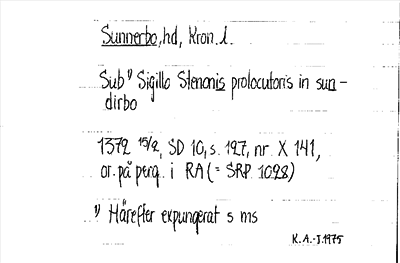 Sunnerbo, hd, Kron. l.
Sub ¹⁾ Sigillo Stenonis prolocutoris in sun-
dirbo
1372 15/2, SD 10, s. 127, nr. X 141,
or. på perg. i RA (= SRP 1028)
¹⁾ Härefter expungerat s ms
K.A.-J. 1975